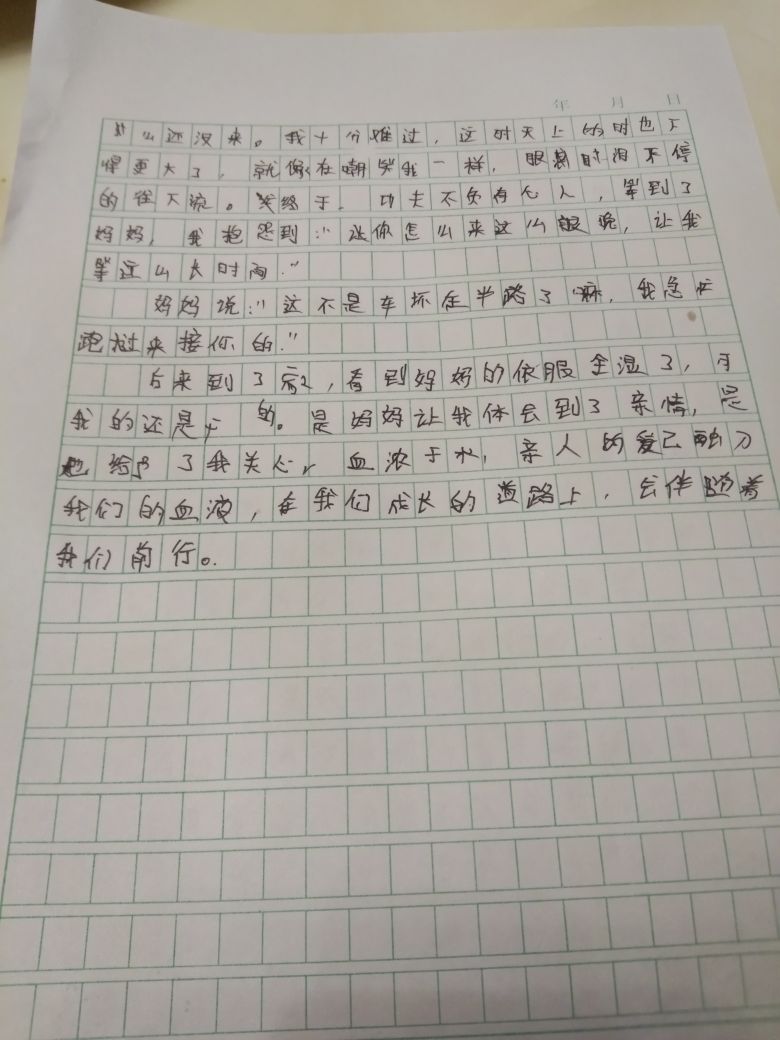 年 月 日
么还没来。我十分难过，这时天上的时也下
得更大了，就像在嘲笑我一样，眼泪不停
的往下流。终于，功夫不负有心人，等到了
妈妈，我抱怨到："你怎么来这么晚，让我
等这么长时间。"
妈妈说："这不是车坏在半路了嘛，我急忙
跑过来接你的。"
后来到了家，看到妈妈的依服全湿了，可
我的还是干的。是妈妈让我体会到了亲情，是
她给予了我关心，血浓于水，亲人的爱已融入
我们的血液，在我们成长的道路上，会伴随着
我们前行。